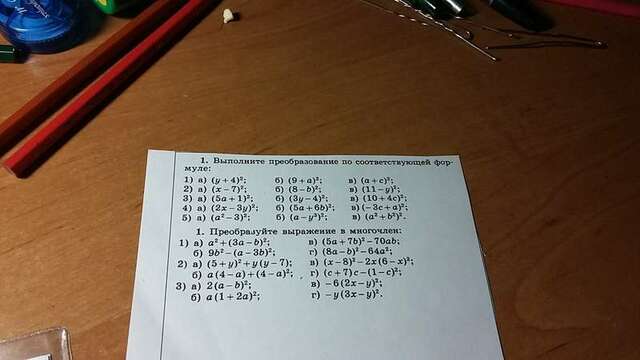 1. Выполните преобразование по соответствующей фор-
муле:
1) а) (y + 4)²; б) (9 + a)²; в) (a + c)²;
2) а) (x − 7)²; б) (8 − b)²; в) (11 − y)²;
3) а) (5a + 1)²; б) (3y − 4)²; в) (10 + 4c)²;
4) а) (2x − 3y)²; б) (5a + 6b)²; в) (−3c + a)²;
5) а) (a² − 3)²; б) (a − y³)²; в) (a² + b²)².
1. Преобразуйте выражение в многочлен:
1) а) a² + (3a − b)²; в) (5a + 7b)² − 70ab;
б) 9b² − (a − 3b)²; г) (8a − b)² − 64a².
2) а) (5 + y)² + y (y − 7); в) (x − 8)² − 2x (6 − x)²;
б) a (4 − a) + (4 − a)²; г) (c + 7) c − (1 − c)²;
3) а) 2 (a − b)²; в) −6 (2x − y)²;
б) a (1 + 2a)²; г) −y (3x − y)².